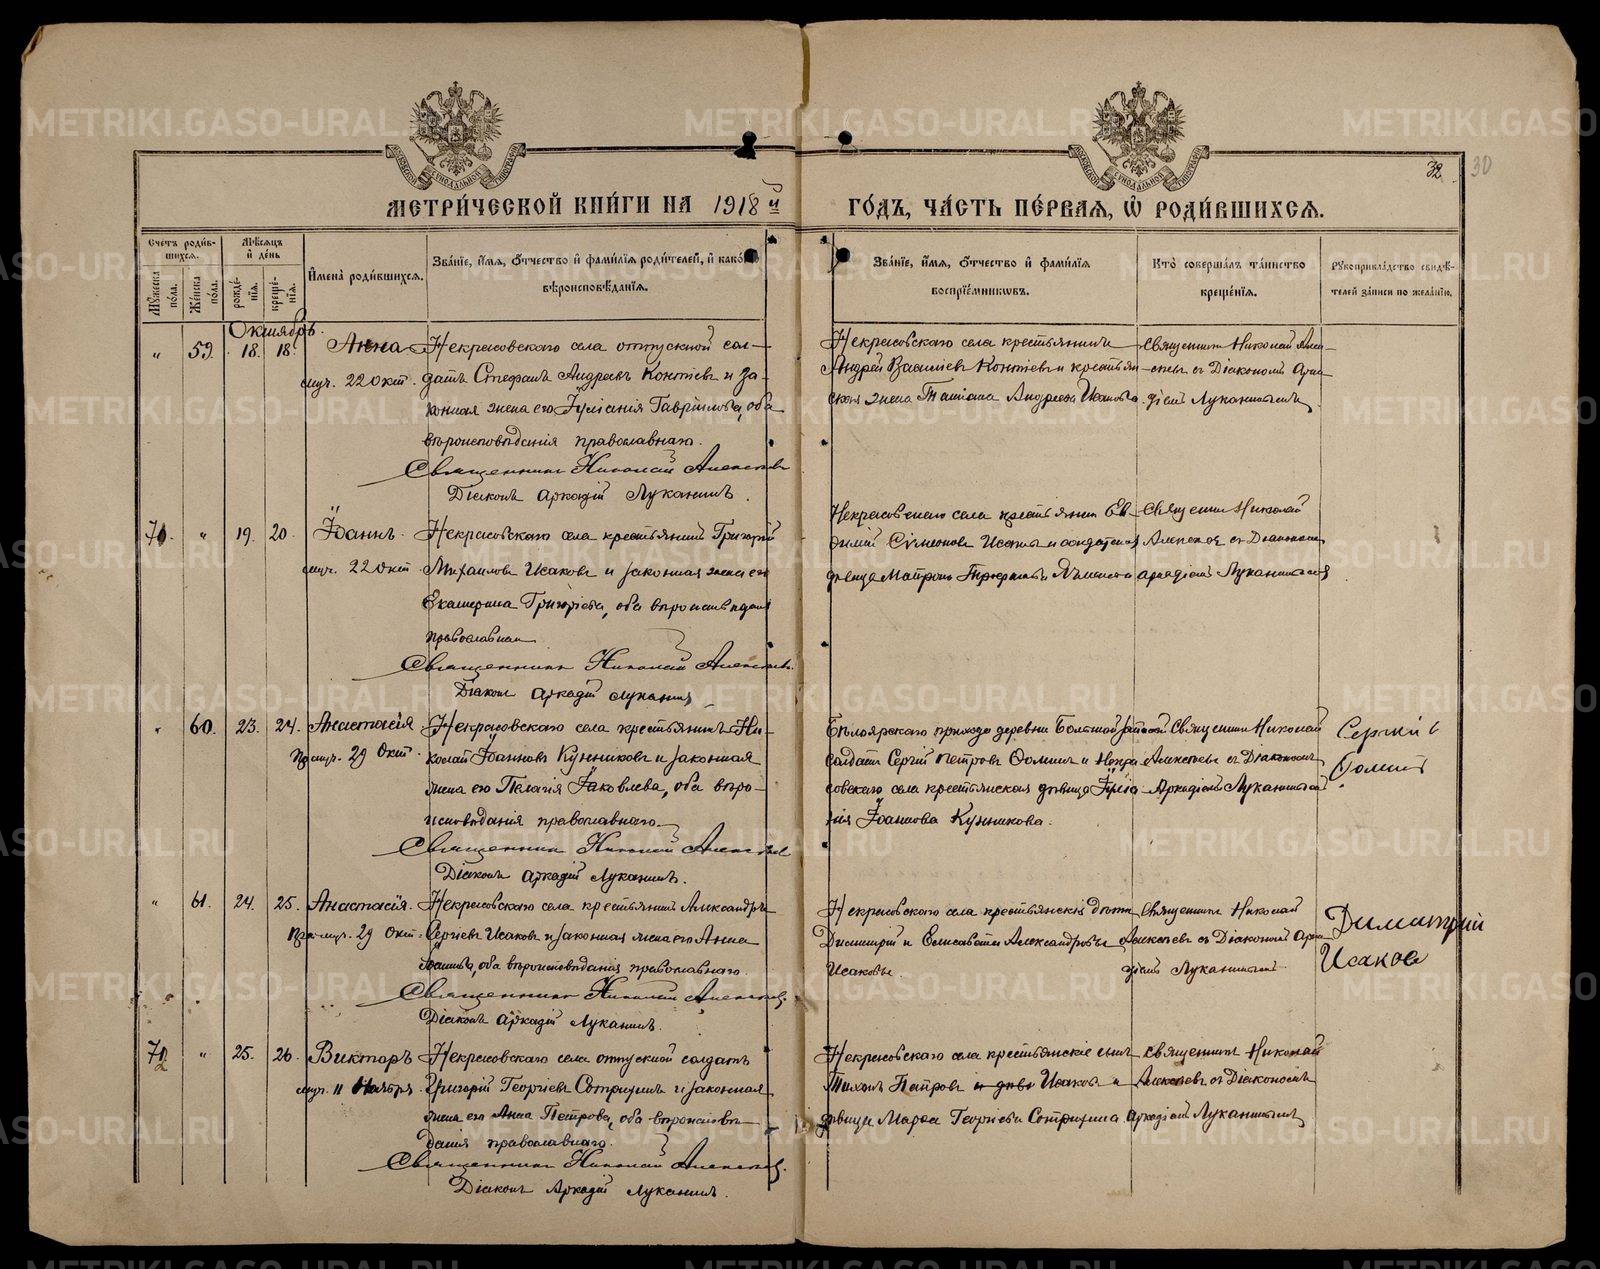 МЕТРИ́ЧЕСКОЙ КНИ́ГИ НА 1918й ГО́ДЪ, ЧА́СТЬ ПЕ́РВАЯ, Ѡ РОДИ́ВШИХСЯ.
32
30
Сче́тъ роди́в-
шихся.
Мѣ́сяцъ
и де́нь
Му́жеска по́ла.
Же́нска по́ла.
рожде́-
нія.
креще́-
нія.
Имена̀ роди́вшихся.
Зва́ніе, и́мя, о́тчество и фами́лія роди́телей, и како́го
вѣроисповѣ́данія.
Зва́ніе, и́мя, о́тчество и фами́лія
воспріе́мниковъ.
Кто̀ соверша́лъ та́инство
креще́нія.
Рукоприкла́дство свидѣ́-
телей за́писи по жела́нію.
Октябрь.
" 59. 18. 18. Анна
мур. 22 окт.
Некрасовскаго села отпускной сол-
датъ Стефанъ Андреевъ Коктевъ и за-
конная жена его Іуліанія Гаврілова, оба
вѣроисповѣданія православнаго.
Священникъ Николай Алексѣевъ
Діаконъ Аркадій Луканинъ.
Некрасовскаго села крестьянинъ
Андрей Васильевъ Коктевъ и крестьян-
ская жена Татіана Андреева Исакова.
Священникъ Николай Алек-
сѣевъ съ Діакономъ Арка-
діемъ Луканинымъ
" 19. 20. Іоаннъ.
мур. 22 окт
Некрасовскаго села крестьянинъ Григорій
Михаиловъ Исаковъ и законная жена его
Екатерина Григоріева, оба вѣроисповѣданія
православнаго
Священникъ Николай Алексѣевъ.
Діаконъ Аркадій Луканинъ
Некрасовскаго села крестьянинъ
Исаковъ и солдатская
дѣвица Матрона
Священникъ Николай
Алексѣевъ съ Діакономъ
Аркадіемъ Луканинымъ
" 60. 23. 24. Анастасія
29 Окт.
Некрасовскаго села крестьянинъ Ни-
колай Іоанновъ Кунниковъ и законная
жена его Пелагія Іаковлева, оба вѣро-
исповѣданія православнаго.
Священникъ Николай Алексѣевъ
Діаконъ Аркадій Луканинъ.
Бѣлоярскаго прихода деревни
солдатъ Сергій Петровъ Ѳоминъ и Некра-
совскаго села крестьянская дѣвица Іуліа-
нія Іоаннова Кунникова.
Священникъ Николай
Алексѣевъ съ Діакономъ
Аркадіемъ Луканинымъ
Сергий
Фомин
" 61. 24. 25. Анастасія.
29 Окт.
Некрасовскаго села крестьянинъ Александръ
Сергіевъ Исаковъ и законная жена его Анна
оба вѣроисповѣданія православнаго.
Священникъ Николай Алексѣевъ.
Діаконъ Аркадій Луканинъ.
Некрасовскаго села крестьянскія дѣти
Димитрій и Елисавета Александровы
Исаковы.
Священникъ Николай
Алексѣевъ съ Діакономъ Арка-
діемъ Луканинымъ
Димитрий
Исаков
72 " 25. 26. Викторъ
мур. 11 Ноября
Некрасовскаго села отпускной солдатъ
Григорій Георгіевъ Сотринъ и законная
жена его Анна Петрова, оба вѣроисповѣ-
данія православнаго.
Священникъ Николай Алексѣевъ.
Діаконъ Аркадій Луканинъ.
Некрасовскаго села крестьянскіе сынъ
Тихонъ Петровъ Исаковъ и
дѣвица Марѳа Георгіева
Священникъ Николай
Алексѣевъ съ Діакономъ
Аркадіемъ Луканинымъ
METRIKI.GASO-URAL.RU